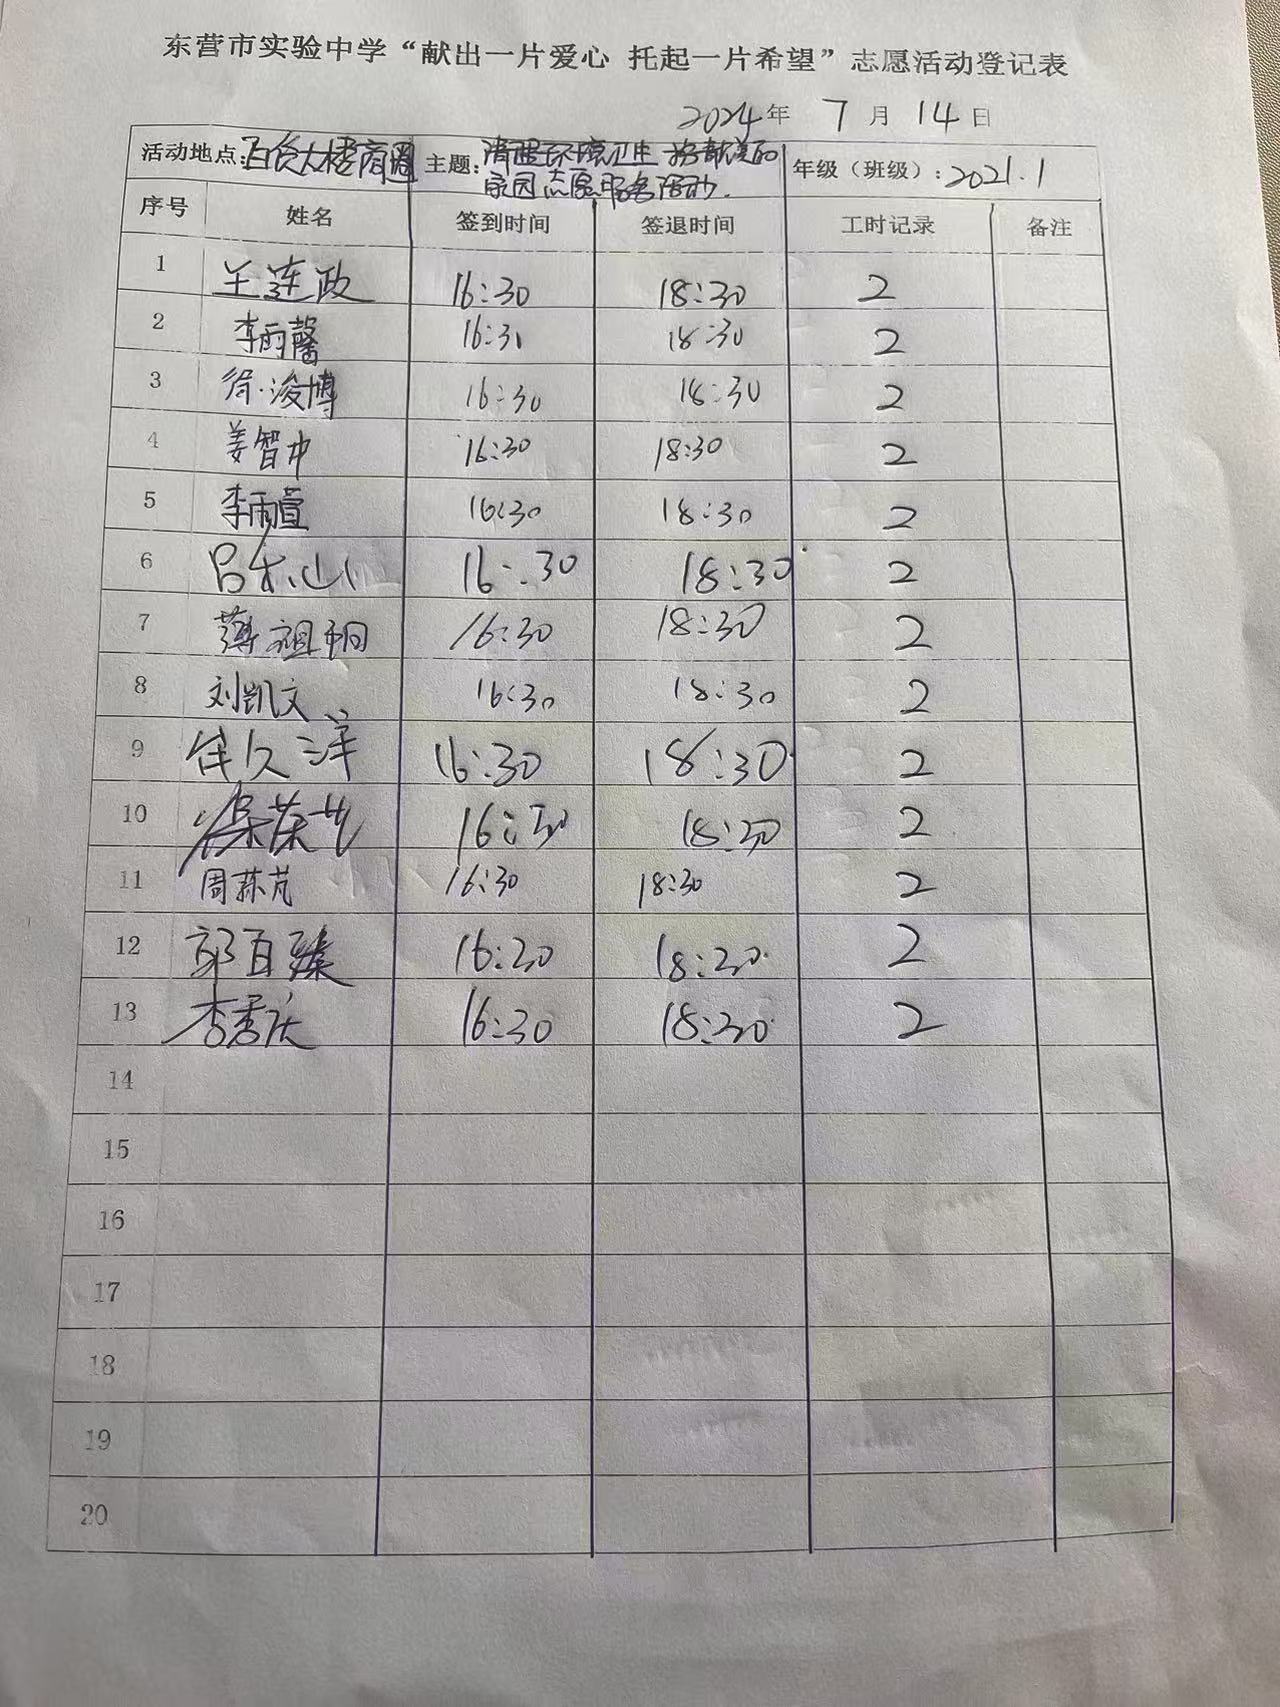 东营市实验中学“献出一片爱心 托起一片希望”志愿活动登记表
2024年 7月 14日
活动地点:百货大楼商圈 主题:清理环境卫生 共建美的 年级（班级）:2021.1
家园志愿服务活动.
序号 姓名 签到时间 签退时间 工时记录 备注
1 王连政 16:30 18:30 2
2 李雨馨 16:31 18:30 2
3 徐浚博 16:30 18:30 2
4 姜智中 16:30 18:30 2
5 李雨萱 16:30 18:30 2
6 16:30 18:30 2
7 16:30 18:30 2
8 刘凯文 16:30 18:30 2
9 16:30 18:30 2
10 16:30 18:30 2
11 周荪芃 16:30 18:30 2
12 郭百臻 16:30 18:30 2
13 李秀庆 16:30 18:30 2
14
15
16
17
18
19
20